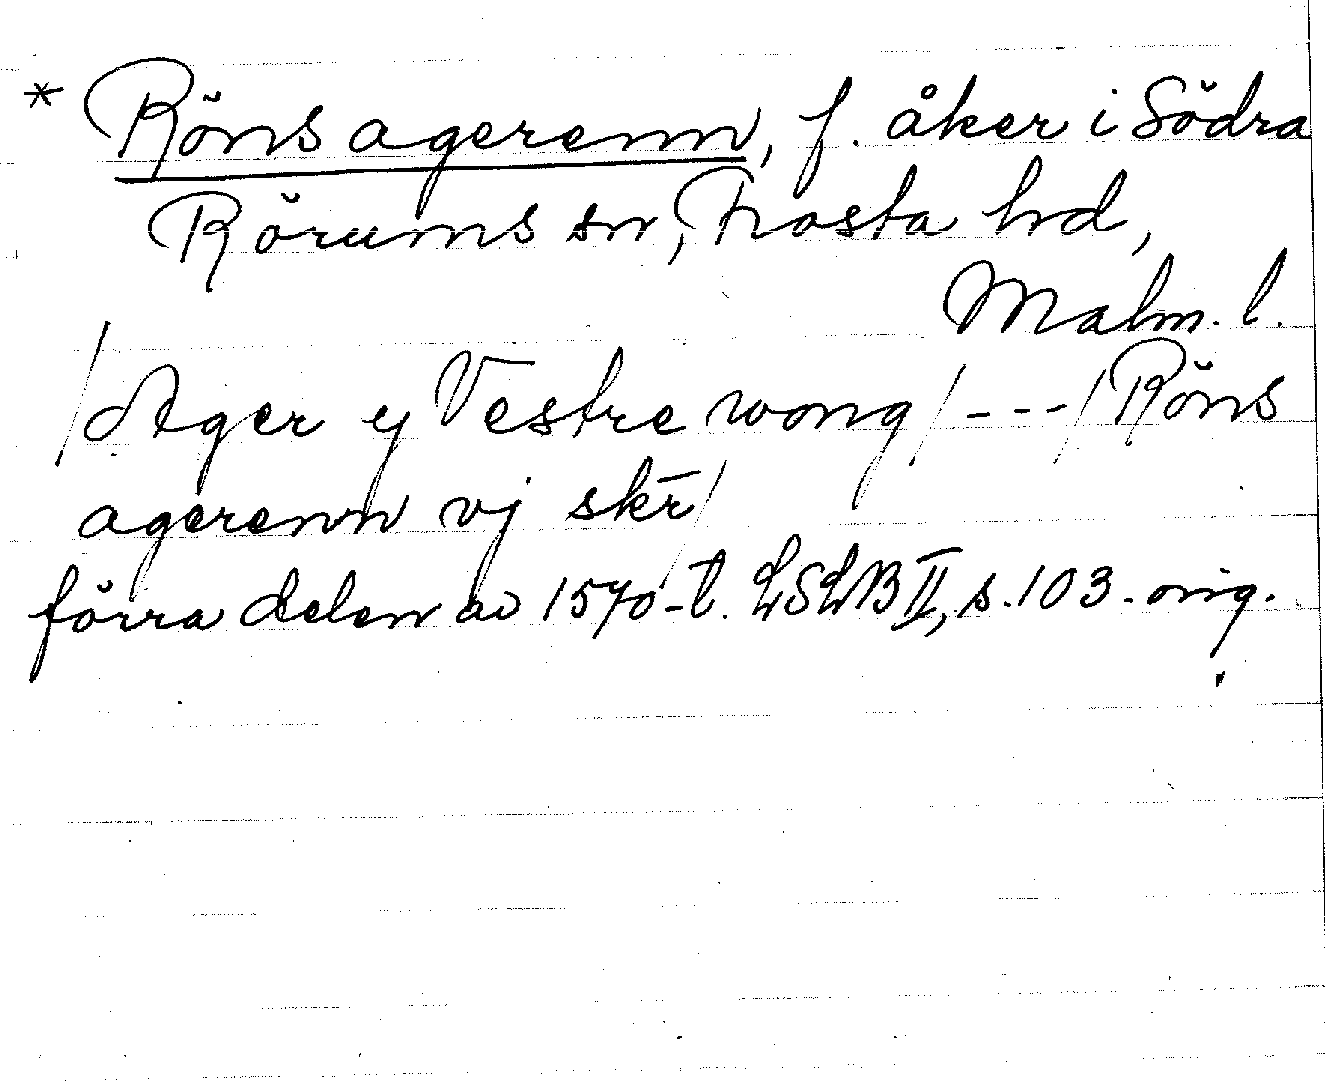 * Röns agerenn, f. åker i Södra
Rörums sn, Frosta hd,
Malm. l.
/Ager y Vestre wong/---/Röns
agerenn vj skr̄/
förra delen av 1570-t. LSLB II, s. 103. orig.